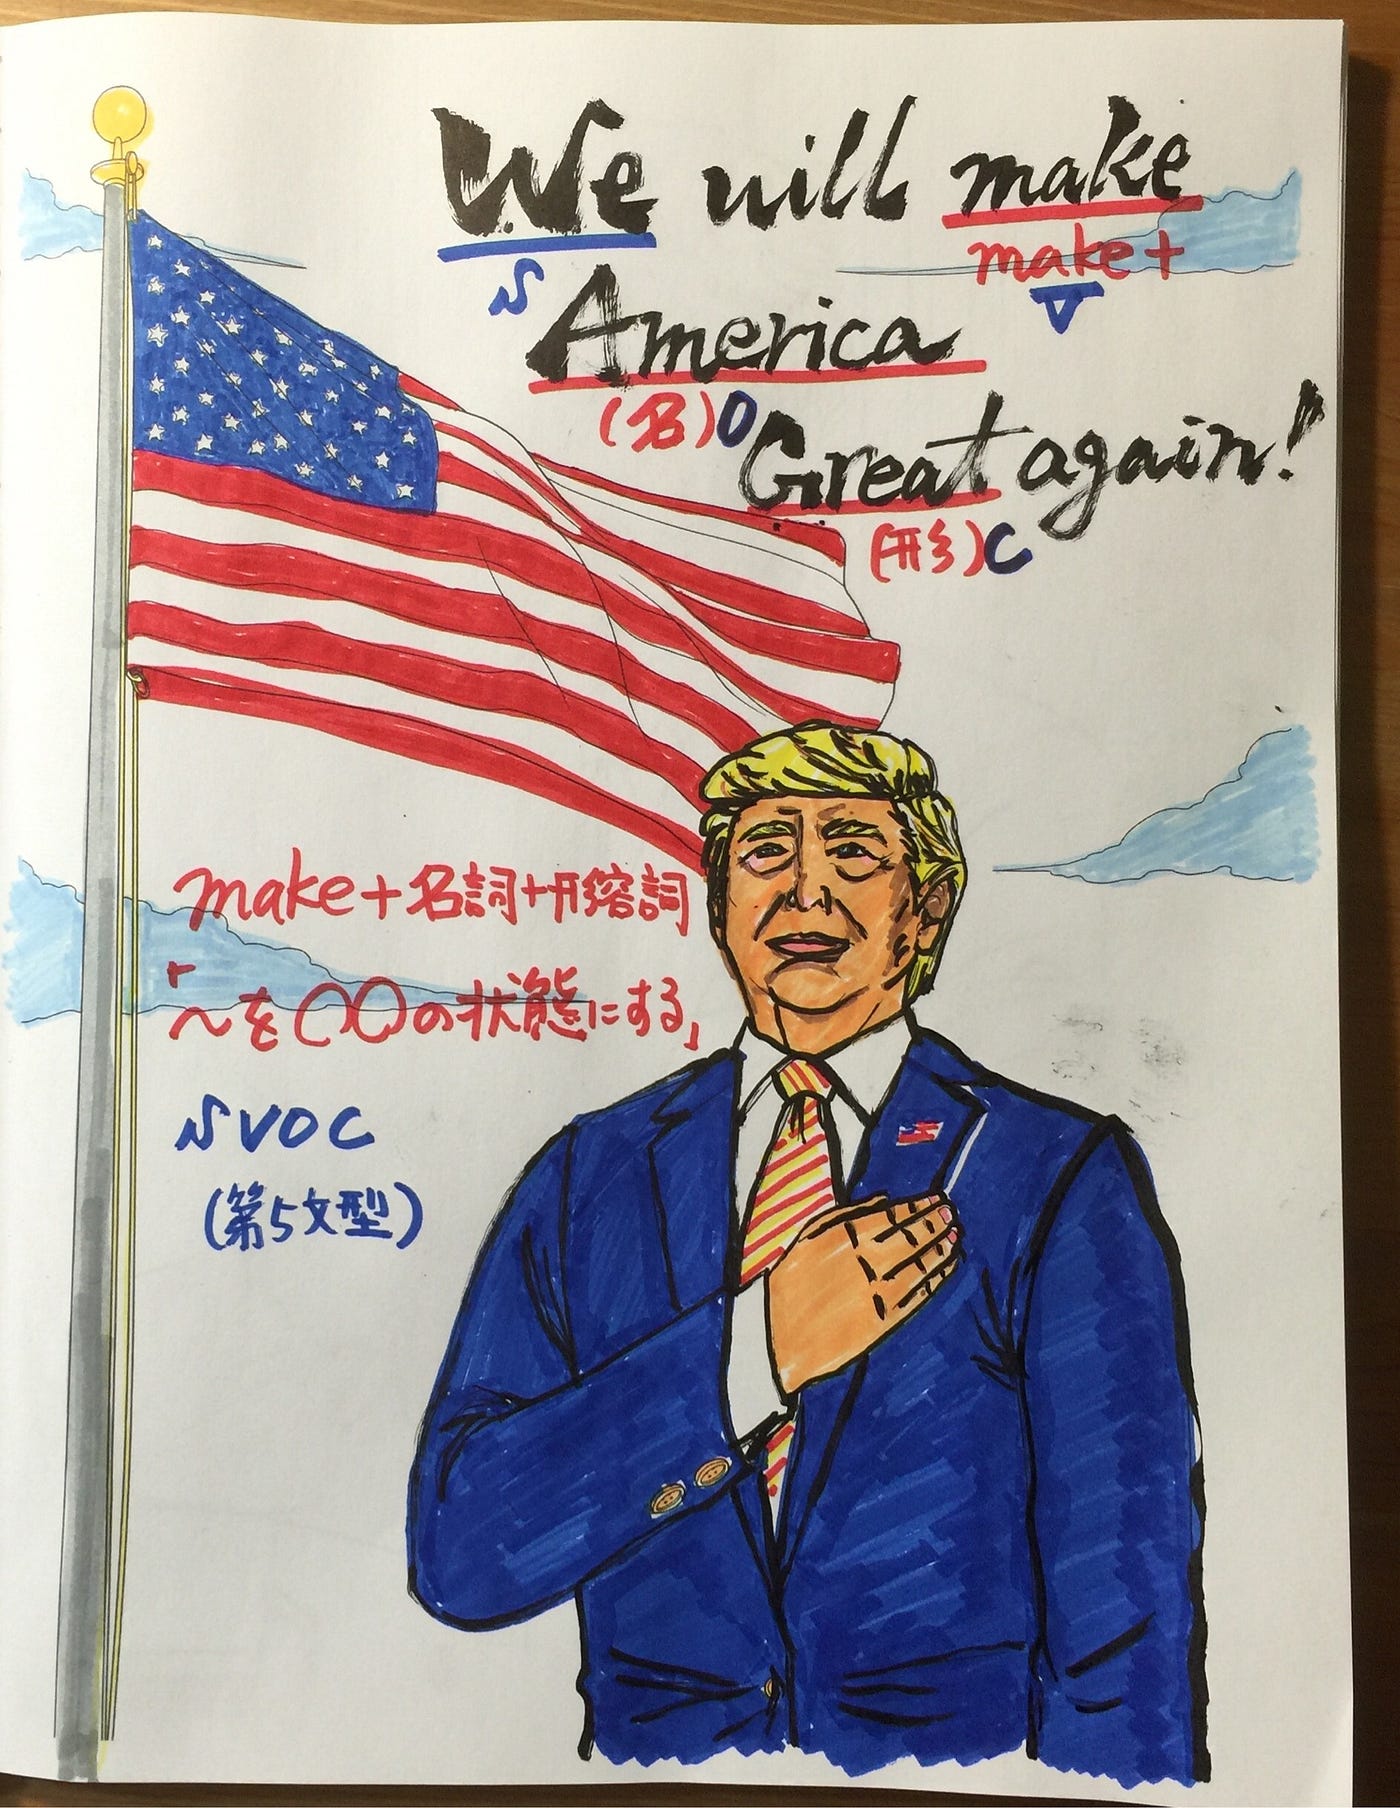 We will make
S
make+
V
America
(名)O
Great again!
(形)C
make+名詞+形容詞
「~を○○の状態にする」
SVOC
(第5文型)